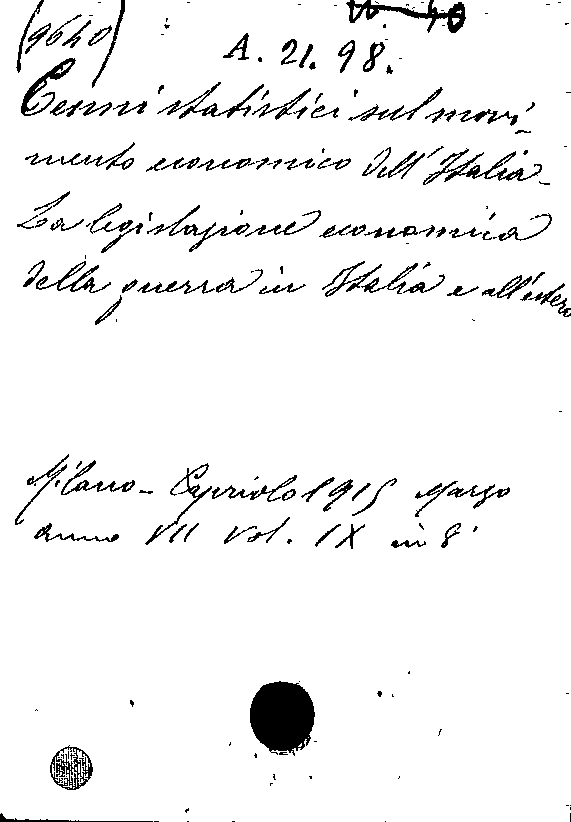 (9640)
A. 21. 98.
Cenni statistici sul movi-
mento economico dell'Italia-
La legislazione economica
della guerra in Italia e all'estero
Milano - Capriolo 1915 Marzo
anno VII Vol. IX in 8°